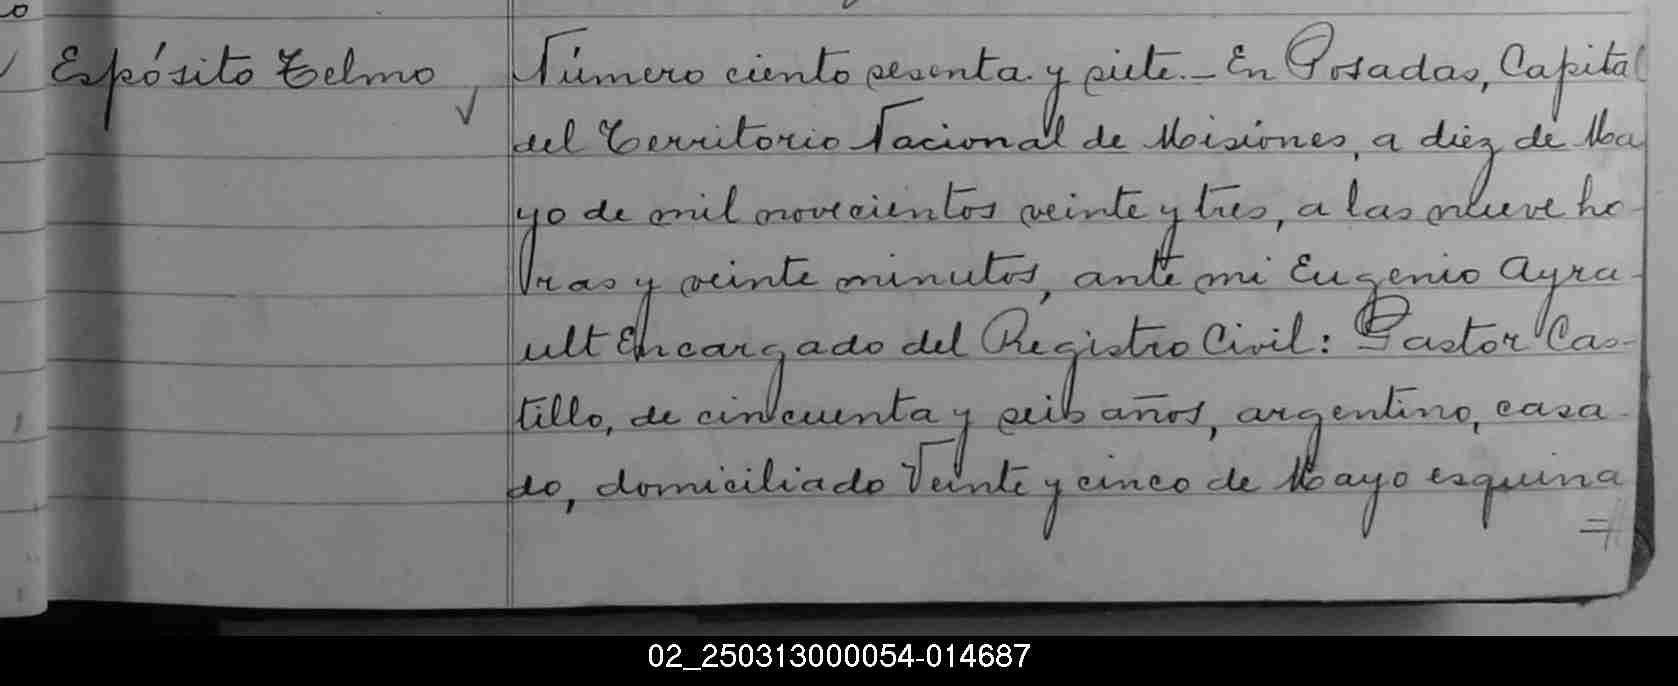 Espósito Telmo
Número ciento sesenta y siete.- En Posadas, Capital
del Territorio Nacional de Misiones, a diez de Ma
yo de mil novecientos veinte y tres, a las nueve ho
ras y veinte minutos, ante mi Eugenio Ayra
ult Encargado del Registro Civil: Pastor Cas-
tillo, de cincuenta y seis años, argentino, casa-
do, domiciliado Veinte y cinco de Mayo esquina
02_250313000054-014687